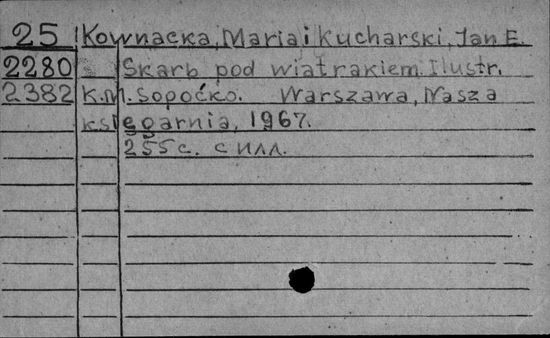 25 Kownacka, Maria i Kucharski, Jan E.
2280 Skarb pod wiatrakiem. Ilustr.
2382 K.M. Sopoćko. Warszawa, Nasza
księgarnia, 1967.
255 с. с илл.